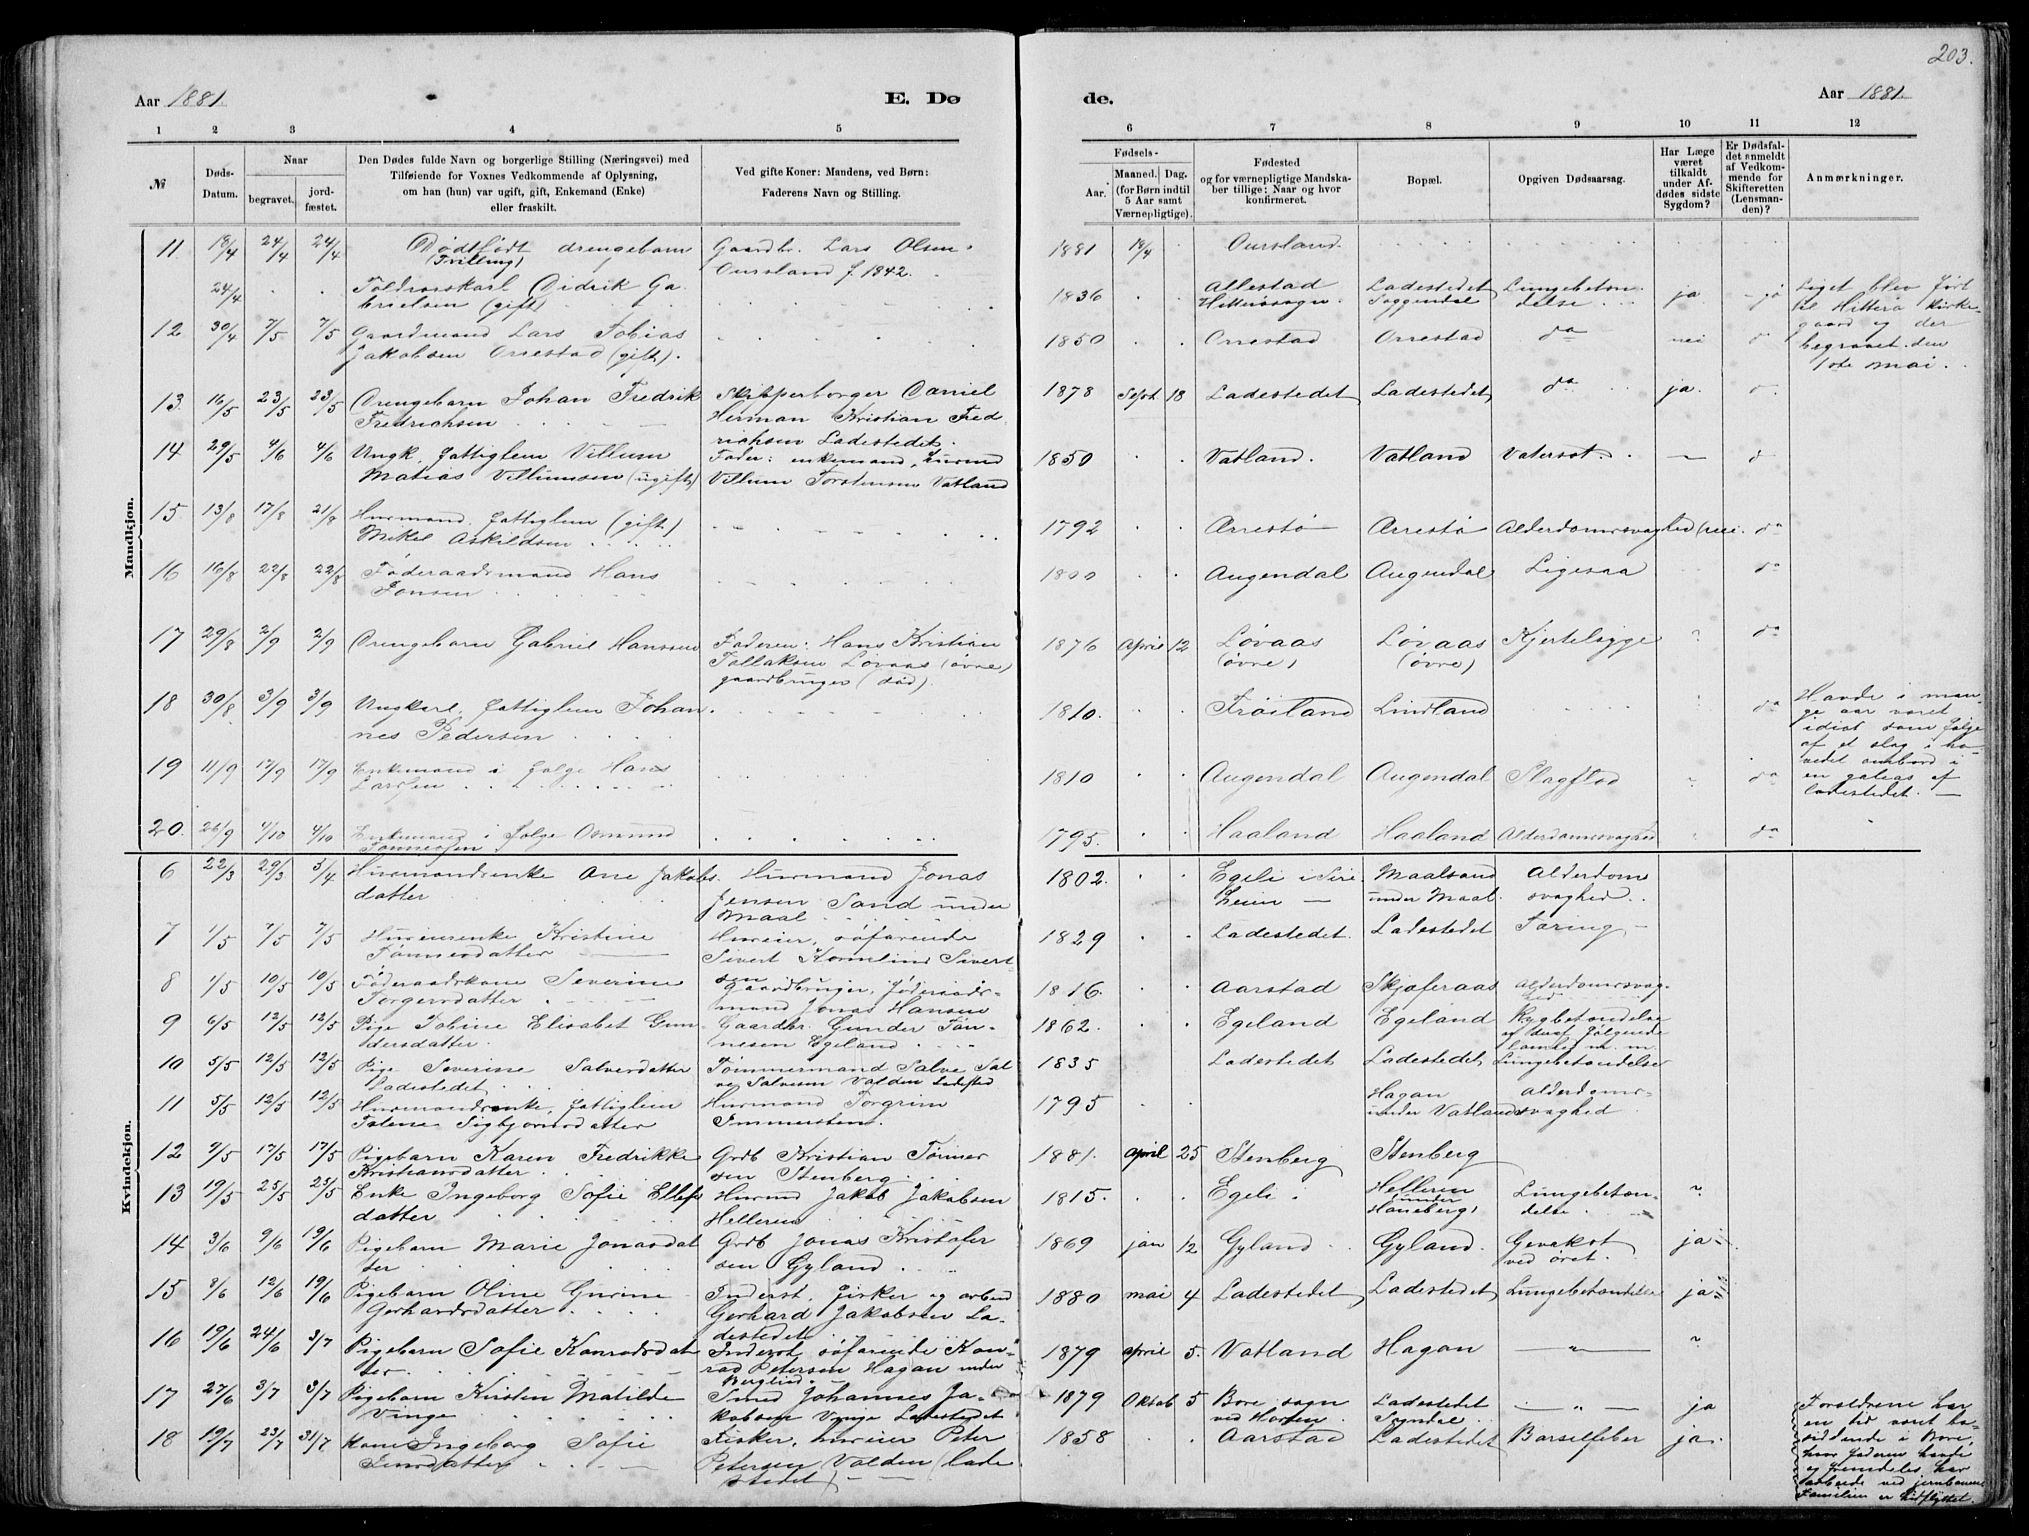 203.
Aar 1881.
E. Dø
de.
Aar 1881.
1 2 3 4 5
6 7 8 9 10 11 12
№
Døds-Datum.
Naar
begravet.
jord-fæstet.
Den Dødes fulde Navn og borgerlige Stilling (Næringsvei) med
Tilføiende for Voxnes Vedkommende af Oplysning,
om han (hun) var ugift, gift, Enkemand (Enke)
eller fraskilt.
Ved gifte Koner: Mandens, ved Børn:
Faderens Navn og Stilling.
Fødsels-
Aar.
Maaned. Dag.
(for Børn indtil
5 Aar samt
Værnepligtige).
Fødested
og for værnepligtige Mandska-
ber tillige: Naar og hvor
konfirmeret.
Bopæl.
Opgiven Dødsaarsag.
Har Læge
været
tilkaldt
under Af-
dødes sidste
Sygdom?
Er Dødsfal-
det anmeldt
af Vedkom-
mende for
Skifteretten
(Lensman-
den)?
Anmærkninger.
Mandkjøn.
11 18/4 24/4 24/4 Dødsfødt drengebarn Gaardbr. Lars Olsen 1881 18/4 Oursland
(Tvilling) Oursland f. 1842.
24/4 Toldrorskarl Didrik Ga 1836 Allestad Ladestedet Lungebeten ja ja Liget blev ført
brielsen (gift) Hitterøsogn Soggendal delse til Hitterø kirke-
12 30/4 7/5 7/5 Gaardmand Lars Tobias 1850 Orrestad Orrestad do nei gaard og der
Jakobsen Orrestad (gift). begravet den
1ste mai.
13 16/5 23/5 23/5 Drengebarn Johan Fredrik Skibperborger Daniel 1878 Sept 18 Ladestedet Ladestedet do ja
Fredrichsen Herman Kristian Fred
richsen Ladestedet.
14 29/5 4/6 4/6 Ungk. fattiglem Villum Fader: enkemand, husmd 1850 Vatland. Vatland Vatersot
Matias Villumsen (ugift) Villum Torstensen Vatland
15 13/8 17/8 21/8 Husmand, fattiglem (gift) 1792 Arrestø Arrestø Alderdomssvaghed nei do
Mikel Askildsen
16 16/8 22/8 22/8 Føderaadsmand Hans 1800 Augendal Augendal Ligesaa do
Tonsen
17 29/8 2/9 2/9 Drengebarn Gabriel Hanssen Faderen: Hans Kristian 1876 April 12 Løvaas Løvaas Kjertelsyge ? do
Tollaksen Løvaas (øvre) (øvre) (øvre)
gaardbruger (død).
18 30/8 3/9 3/9 Ungkarl, fattiglem Johan 1810. Frøiland Lindland do Havde i man
nes Pedersen ge aar været
idiot som følge
af et slag i ho
vedet ombord i
en galeas af
ladestedet.
19 11/9 17/9 17/9 Enkemand i følge Hans 1810 Augendal Augendal Slagflod do
Larssen
20. 26/9 4/10 4/10 Enkemand i følge Osmund 1795. Haaland Haaland Alderdomssvaghed do
Tønnessen
Kvindekjøn.
6 22/3 29/3 3/4 Husmandsenke Ane Jakobs. Husmand Jonas 1802. Egeli i Sire Maalsand Alderdoms
datter Jensen Sand under under Maal. svaghed
Maal
7 1/5 7/5 7/5 Huseierenke Kristine Huseier, søfarende 1829 Ladestedet. Ladestedet Tæring
Tønnesdatter Sivert Kornelius Sivert
sen
8 1/5 10/5 10/5 Føderaadskone Severine Gaardbruger, føderaads- 1816. Aarstad Skjæferaas Alderdomssvag
Torgersdatter mand Jonas Hansen hed
9 6/5 12/5 12/5 Pige Tobine Elisabet Gun Gaardbr. Gunder Tøn- 1862. Egeland Egeland Rygbetændelse
dersdatter. nesen Egeland følgende
10 5/5 12/5 12/5 Pige Severine Salvesdatter Tømmermand Salve Sal 1835 Ladestedet Ladestedet Lungebetændelse
Ladestedet ve Salvesen Valden Ladested
11 5/5 12/5 12/5 Husmandsenke, fattiglem Husmand Torgrim 1795 Hagan alderdoms-
Talene Sigbjørnsdatter Immersten. under Vatland svaghed
12 9/5 17/5 17/5 Pigebarn Karen Fredrikke Grdb Kristian Tønnes 1881. april 25 Stenberg Stenberg
Kristiansdatter sen Stenberg
13 19/5 25/5 25/5 Enke Ingeborg Sofie Ellefs Husmd Jakob Jakobsen 1815. Egeli Helleren Lungebetæn- ?
datter Helleren (under delse
Haneberg)
14 3/6 9/6 19/6 Pigebarn Marie Jonasdat Grdb Jonas Kristofer 1869 jan 12 Gyland Gyland. Gevekst ja
ter sen Gyland ved øret.
15 8/6 12/6 19/6 Pigebarn Oline Gurine Inderst, fisker og arbeid 1880 mai 4 Ladestedet Ladestedet Lungebetændelse ja
Gerhardsdatter Gerhard Jakobsen La-
destedet
16 19/6 24/6 3/7 Pigebarn Sofie Konradsdat Inderst søfarende Kon- 1879 april 5. Vatland Hagan — „ — ?
ter rad Petersen Hagan under
Berglind
17 27/6 3/7 3/7 Pigebarn Kirstin Matilde Smed Johannes Ja- 1879 Oktob 5 Bore sogn Ladestedet — „ — ja Forældrene har
Vinge kobsen Vinge Ladestedet ved Horten Sogndal en tid været bo
siddende i Bore,
hvor faderen havde
arbeide ved jernbanen
Familien er hidflyttet.
18 19/7 23/7 31/7 Kone Ingeborg Sofie Fisker, huseier Peter 1858 Aarstad Ladestedet Barselfeber ja
Jensdatter Petersen Valden (lade
stedet)